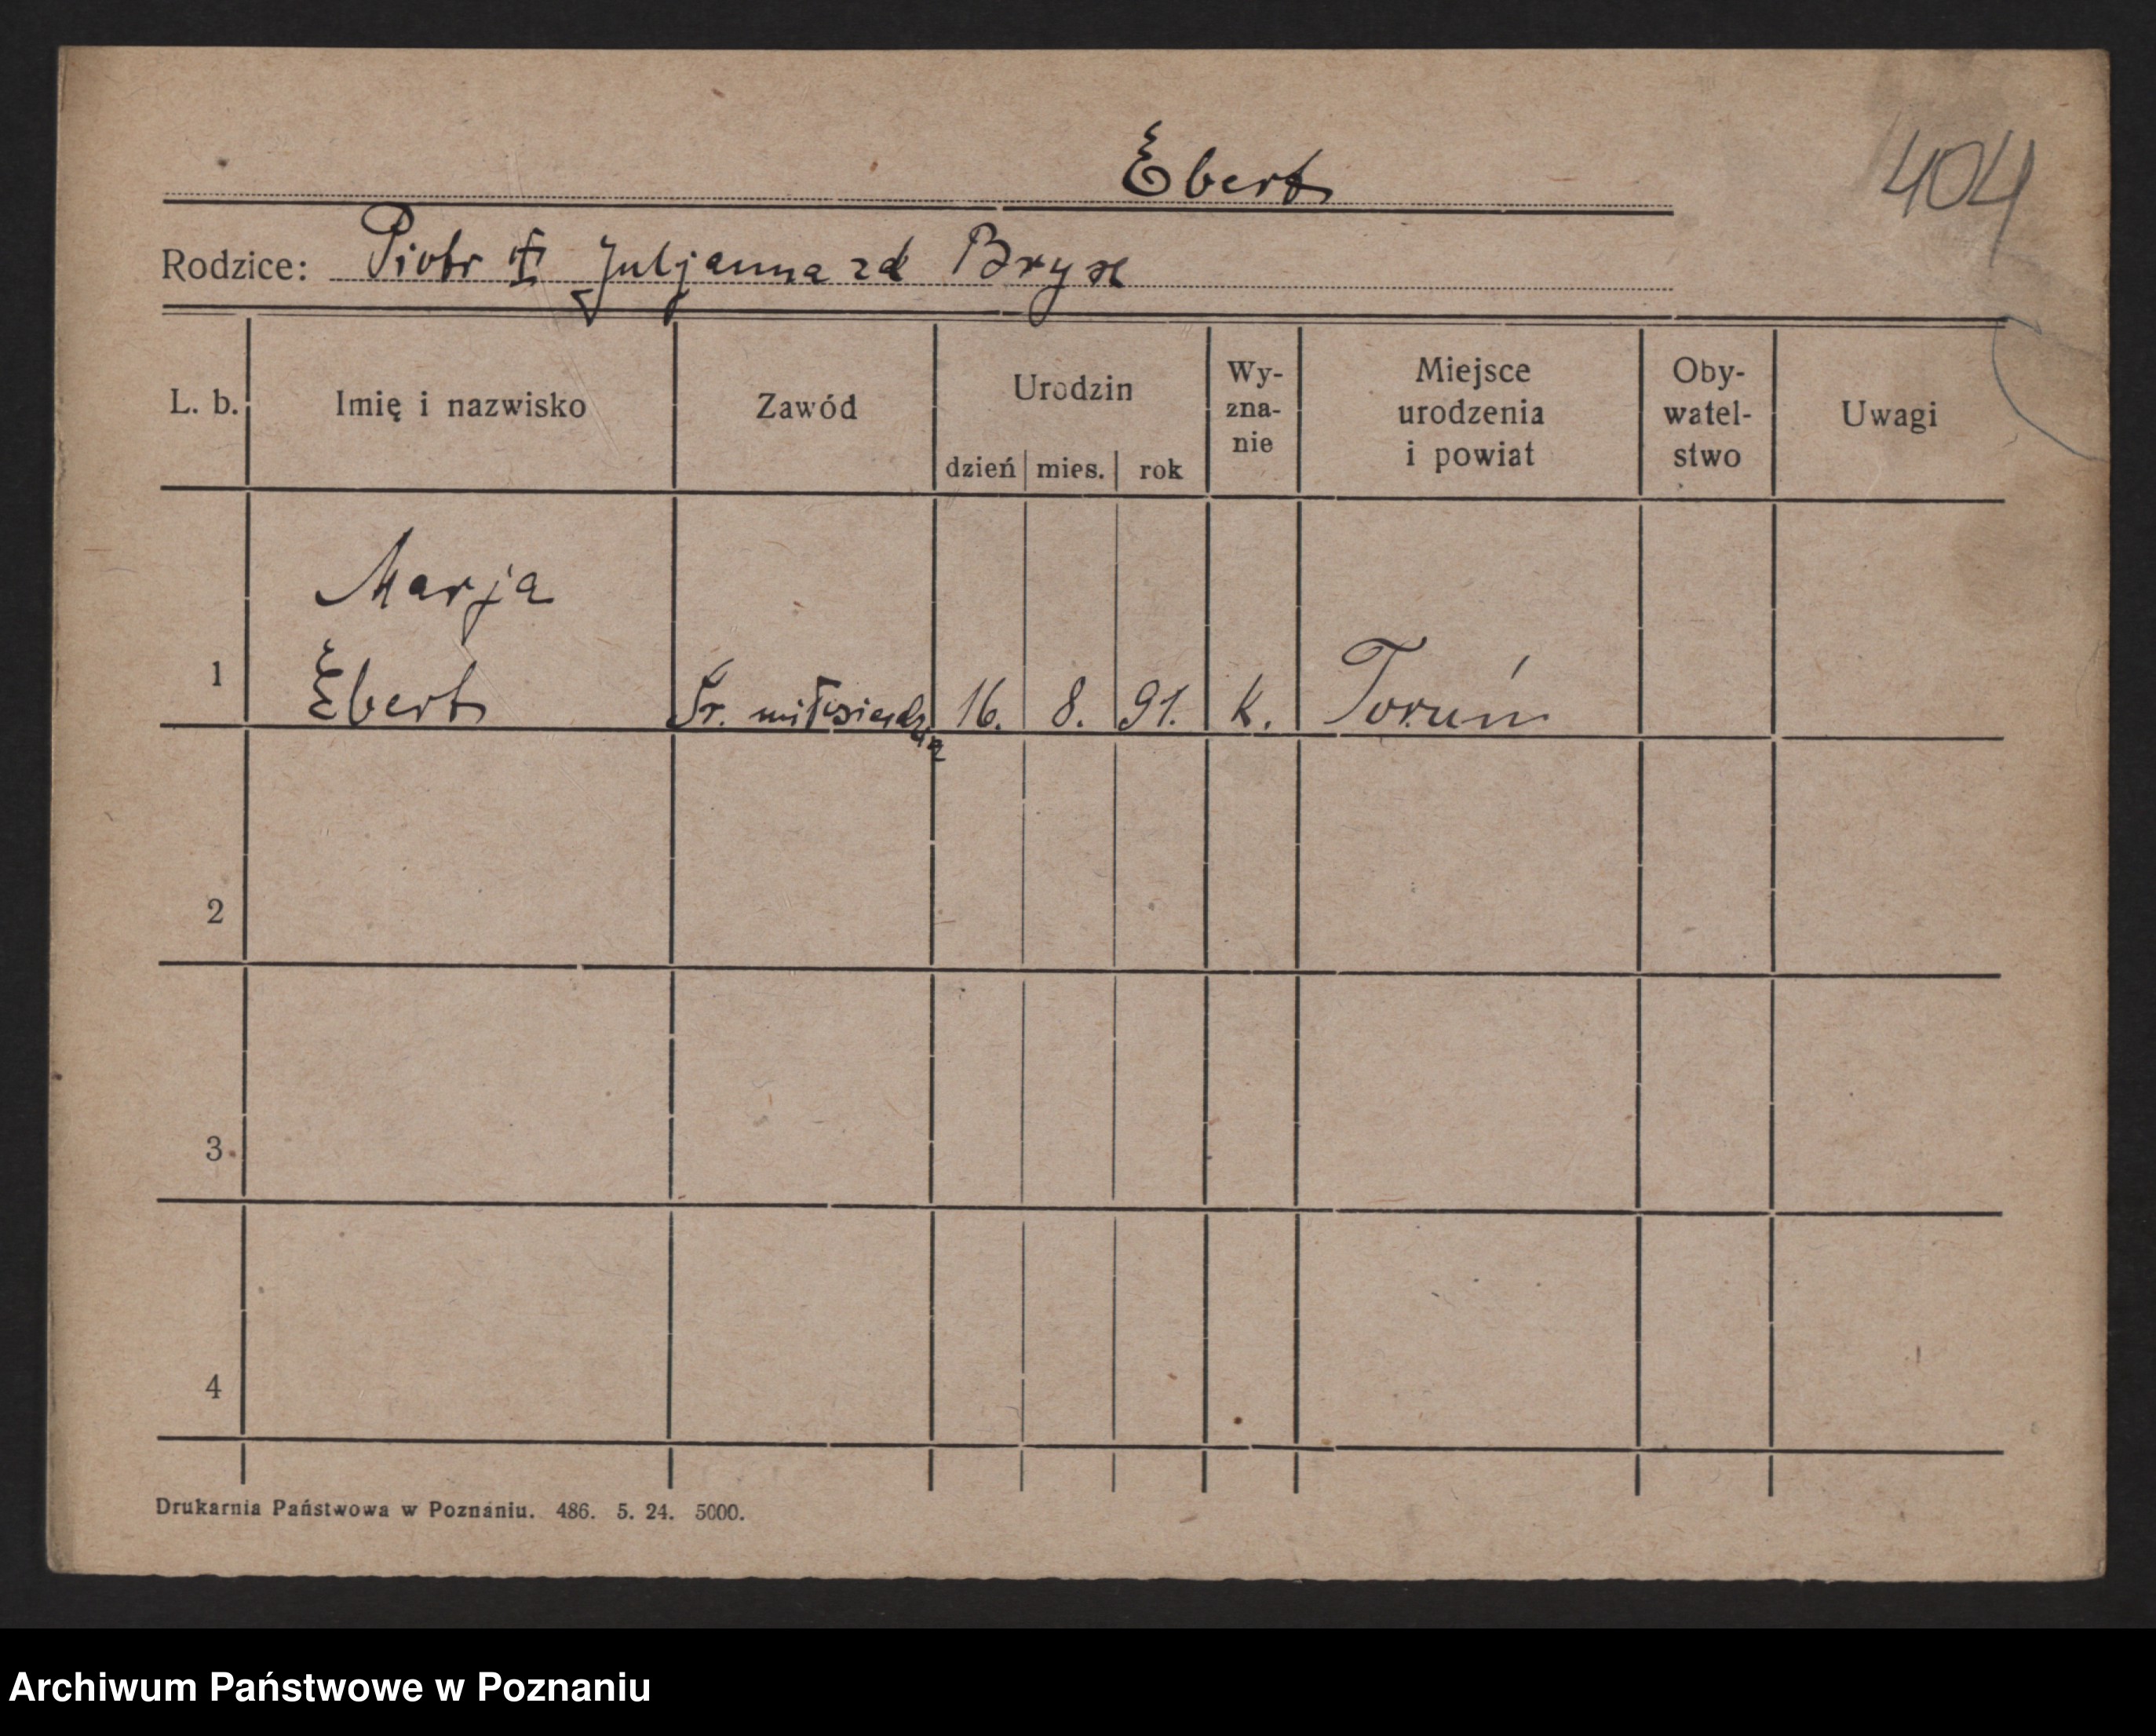 Ebert
404
Rodzice: Piotr ‡ Juljanna zd Bryx
L. b. Imię i nazwisko Zawód Urodzin dzień mies. rok Wy-zna-nie Miejsce urodzenia i powiat Oby-watel-stwo Uwagi
Marja
1 Ebert Sr. miłosierdzia 16. 8. 91. k. Toruń
2
3
4
Drukarnia Państwowa w Poznaniu. 486. 5. 24. 5000.
Archiwum Państwowe w Poznaniu